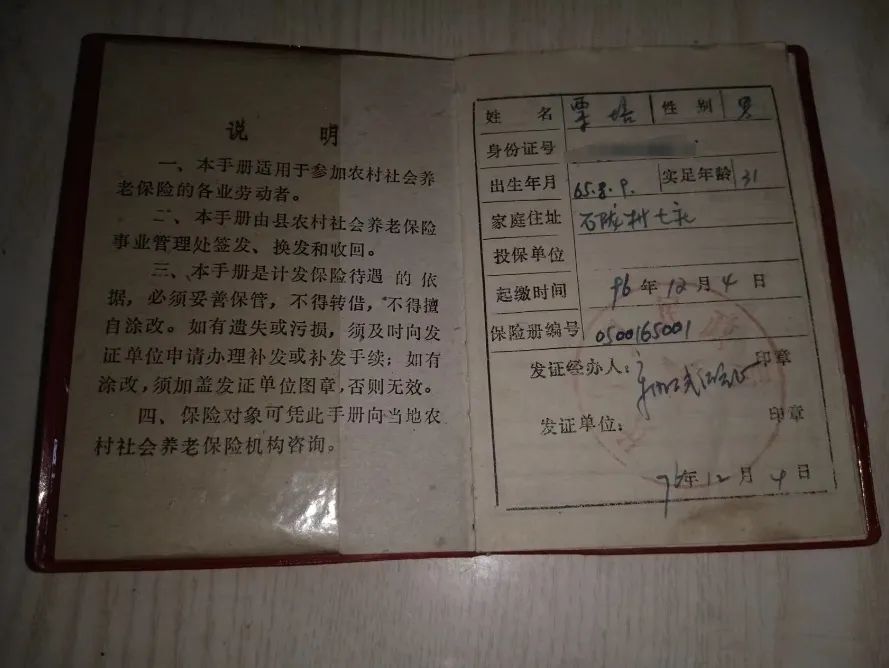 说 明
一、本手册适用于参加农村社会养
老保险的各业劳动者。
二、本手册由县农村社会养老保险
事业管理处签发、换发和收回。
三、本手册是计发保险待遇的依
据,必须妥善保管,不得转借,不得擅
自涂改。如有遗失或污损,须及时向发
证单位申请办理补发或补发手续;如有
涂改,须加盖发证单位图章,否则无效。
四、保险对象可凭此手册向当地农
村社会养老保险机构咨询。
姓 名 覃培 性 别 男
身份证号
出生年月 65.8.9. 实足年龄 31
家庭住址 石陇村七屯
投保单位
起缴时间 96年12月4日
保险册编号 0500165001
发证经办人: 印章
发证单位: 印章
96年12月4日